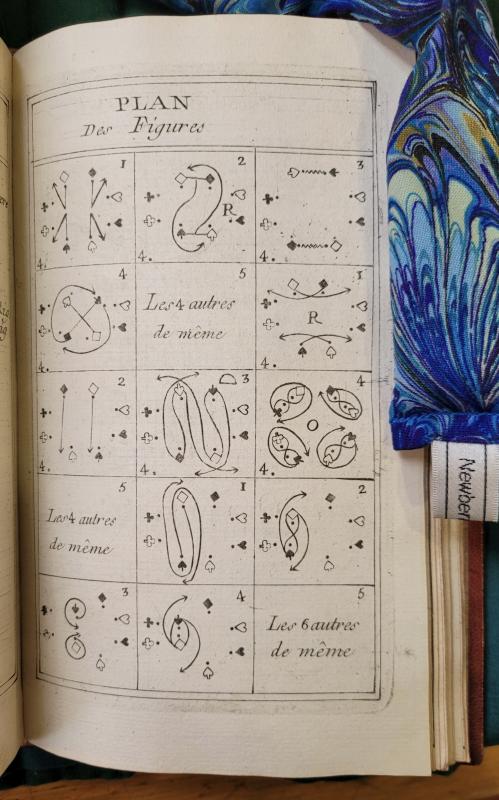 PLAN
Des Figures
1
2
3
R
4.
4.
4.
4
5
1
Les 4 autres
de même
R
4.
4.
2
3
4
4.
4.
4.
5
1
2
Les 4 autres
de même
3
4
5
Les 6 autres
de même
Newber